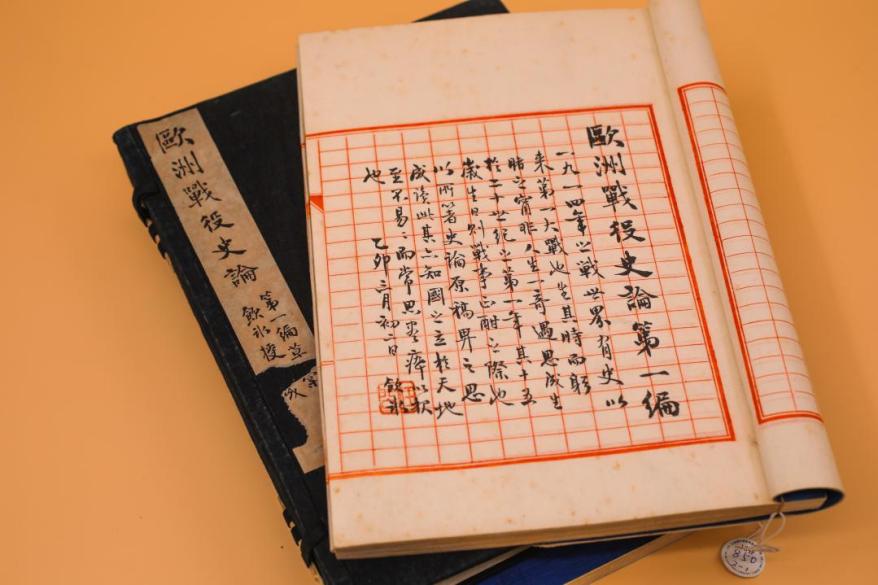 歐洲戰役史論第一編
一九一四年之戰世界有史以
来第一大戰也生其時而躬
睹之寧非人生一奇遇思成生
於二十世紀之第一年其十五
歲生日則戰事正酣之際也
以所著史論原稿畀之思
成讀此其亦知國之立於天地
至不易〻而常思盡瘁以报
也 乙卯三月初二日 飲冰
歐洲戰役史論
第一編草
飲冰
850
2-1